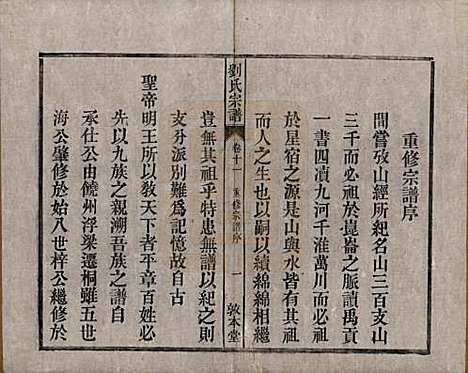 重修宗譜序
間嘗攷山經所紀名山三百支山
三千而必祖於崑崙之脈讀禹貢
一書四瀆九河千淮萬川而必祖
於星宿之源是山與水皆有其祖
而人之生也以嗣以續綿綿相繼
劉氏宗譜
卷十一 重修宗譜序
一
敦本堂
豈無其祖乎特患無譜以紀之則
支分派別難為記憶故自古
聖帝明王所以敎天下者平章百姓必
先以九族之親溯吾族之譜自
承仕公由饒州浮梁遷桐雖五世
海公肇修於始八世梓公繼修於